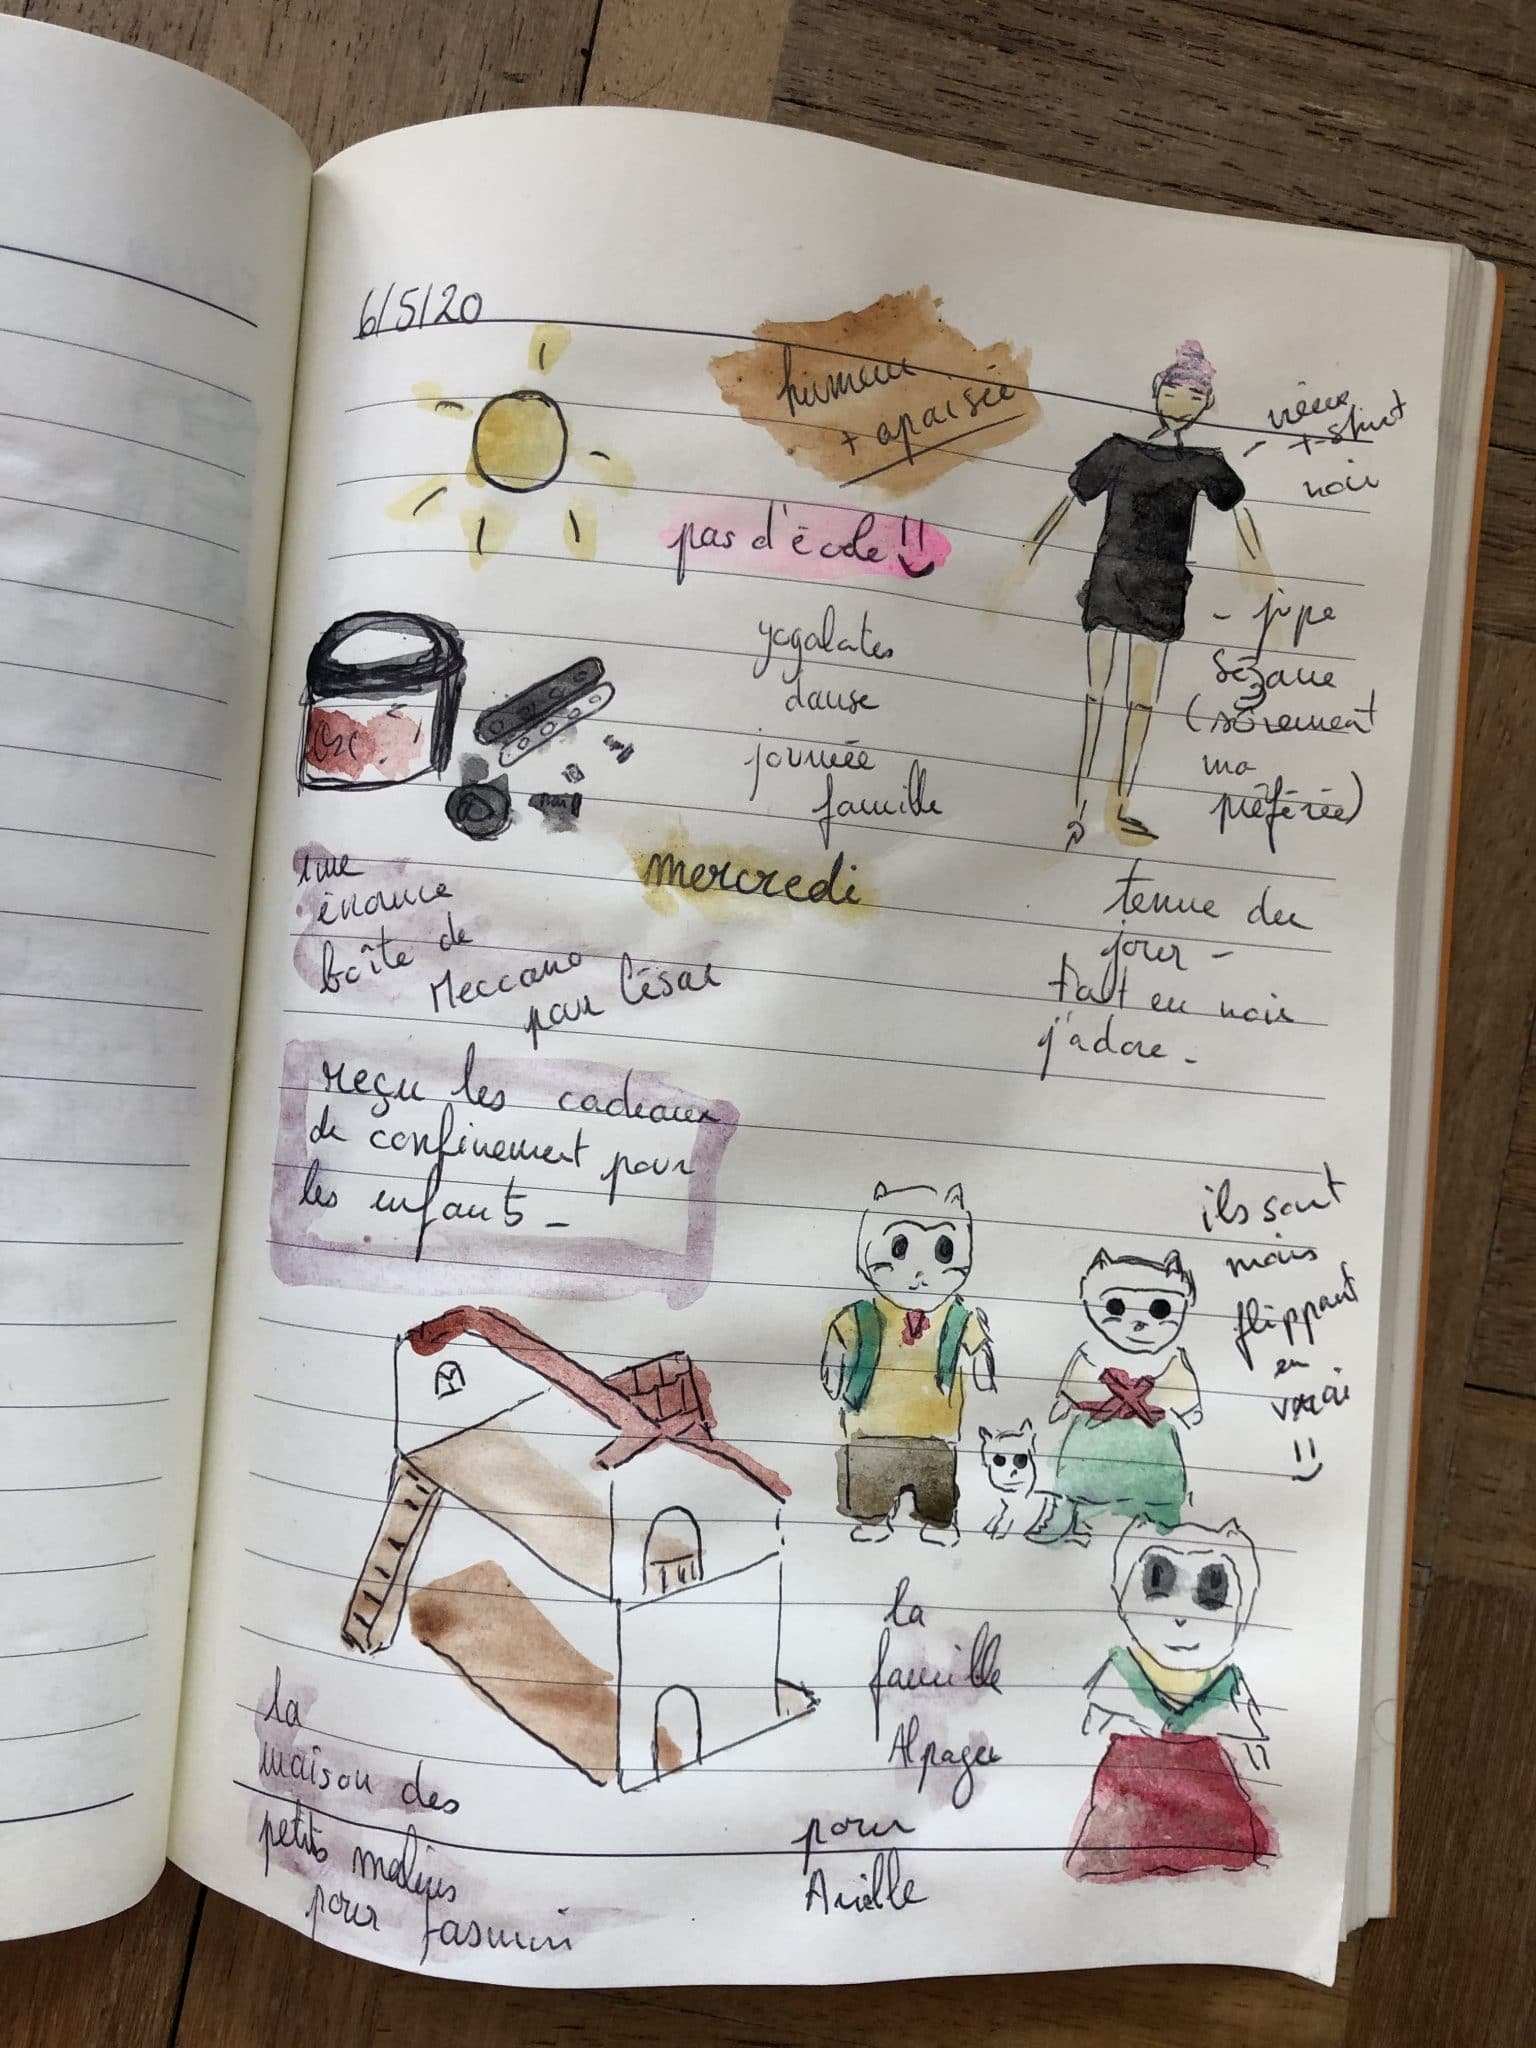 6/5/20
humeur
+ apaisée
- vieux
t-shirt
noir
pas d'école !!
- jupe
Sézane
(sûrement
ma
préférée)
yogalates
danse
journée
famille
mercredi
tenue du
jour -
tout en noir
j'adore -
une
énorme
boîte de
Meccano
pour César
reçu les cadeaux
de confinement pour
les enfants -
ils sont
moins
flippant
en
vrai
la
famille
Alpaga
pour
Arielle
la
maison des
petits malins
pour Jasmin